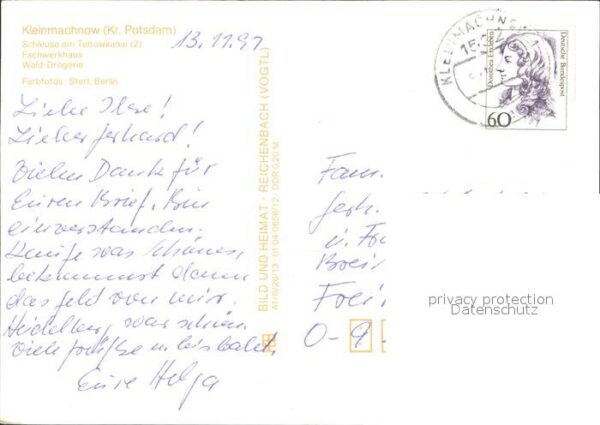 Kleinmachnow (Kr. Potsdam)
Schleuse am Teltowkanal (2)
Fachwerkhaus
Wald-Drogerie
Farbfotos: Sterl, Berlin
13.11.91
Liebe Ilse!
Lieber Gerhard!
Vielen Dank für
Euren Brief. Bin
einverstanden.
Kaufe was Schönes,
bekommst dann
das Geld von mir.
Heidelberg war schön.
Viele Grüße u. bis bald.
Eure Helga
BILD UND HEIMAT · REICHENBACH (VOGTL)
01 04 0656/12 DDR 0,20 M
KLEINMACHNOW
Deutsche Bundespost
60
Fam.
Gerh.
u.
O-9
privacy protection
Datenschutz